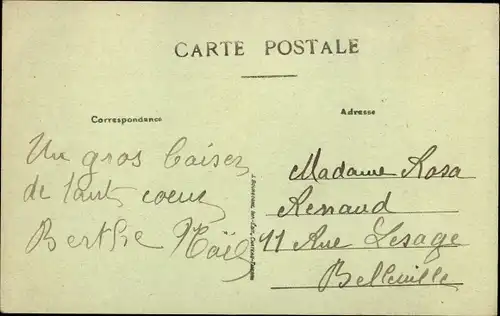 CARTE POSTALE
Correspondance
Adresse
Un gros baiser
de tout coeur
Berthe Noël
Madame Rosa
Renaud
11 Rue Lesage
Belleville